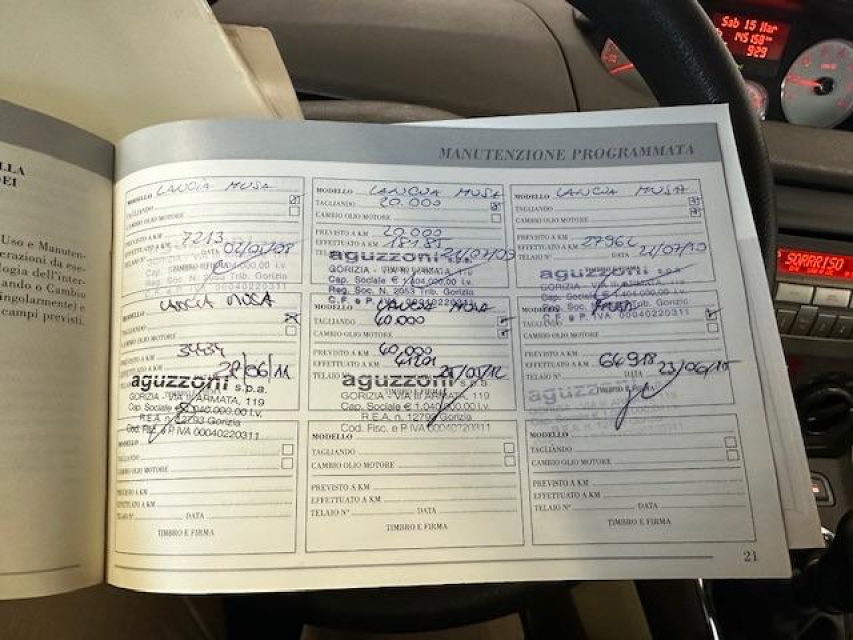 Sab 15 Mar
145158 km
929
SORRISO
LLA
DEI
Uso e Manuten-
erazioni da ese-
logia dell'inter-
ando o Cambio
ingolarmente) e
campi previsti.
MANUTENZIONE PROGRAMMATA
MODELLO LANCIA MUSA
TAGLIANDO
CAMBIO OLIO MOTORE
PREVISTO A KM
EFFETTUATO A KM 7213
DATA 02/01/08
Cap. Sociale
Reg. Soc. N. Trib. Gorizia
C.F. e P. IVA 00040220311
MODELLO LANCIA MUSA
TAGLIANDO 20.000
CAMBIO OLIO MOTORE
PREVISTO A KM 20.000
EFFETTUATO A KM 18185
aguzzoni s.p.a.
GORIZIA - VIA III ARMATA
Cap. Sociale € 1.404.000,00 i.v.
Reg. Soc. N. 2053 Trib. Gorizia
C.F. e P. IVA 00040220311
MODELLO LANCIA MUSA
TAGLIANDO
CAMBIO OLIO MOTORE
PREVISTO A KM
EFFETTUATO A KM 27962
21/07/10
aguzzoni
GORIZIA
C.F. e P. IVA 00040220311
LANCIA MUSA
TAGLIANDO
CAMBIO OLIO MOTORE
PREVISTO A KM
EFFETTUATO A KM
TELAIO N°
aguzzoni s.p.a.
GORIZIA - VIA III ARMATA, 119
Cap. Sociale
R.E.A. n. 12793 Gorizia
Cod. Fisc. e P. IVA 00040220311
LANCIA MUSA
TAGLIANDO 40.000
CAMBIO OLIO MOTORE
PREVISTO A KM 40.000
EFFETTUATO A KM 41201
TELAIO N°
aguzzoni s.p.a.
GORIZIA - VIA III ARMATA, 119
Cap. Sociale € 1.040.000,00 i.v.
R.E.A. n. 12793 Gorizia
Cod. Fisc. e P. IVA 00040220311
CAMBIO OLIO MOTORE
PREVISTO A KM
EFFETTUATO A KM 64918
TELAIO N° DATA 23/06/15
aguzzoni
GORIZIA - VIA III ARMATA, 119
MODELLO
TAGLIANDO
CAMBIO OLIO MOTORE
PREVISTO A KM
EFFETTUATO A KM
TELAIO N° DATA
TIMBRO E FIRMA
MODELLO
TAGLIANDO
CAMBIO OLIO MOTORE
PREVISTO A KM
EFFETTUATO A KM
TELAIO N° DATA
TIMBRO E FIRMA
MODELLO
TAGLIANDO
CAMBIO OLIO MOTORE
PREVISTO A KM
EFFETTUATO A KM
TELAIO N° DATA
TIMBRO E FIRMA
21